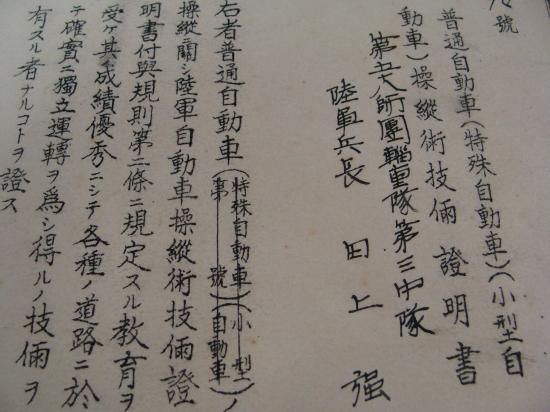 號
普通自動車(特殊自動車)(小型自
動車)操縱術技倆證明書
第五八師團輜重隊第三中隊
陸軍兵長 田上 强
右者普通自動車(特殊自動車)(小型自動車)ノ
操縱ニ關シ陸軍自動車操縱術技倆證
明書付與規則第二條ニ規定スル教育ヲ
受ケ其ノ成績優秀ニシテ各種ノ道路ニ於
テ確實ニ獨立運轉ヲ爲シ得ルノ技倆ヲ
有スル者ナルコトヲ證ス